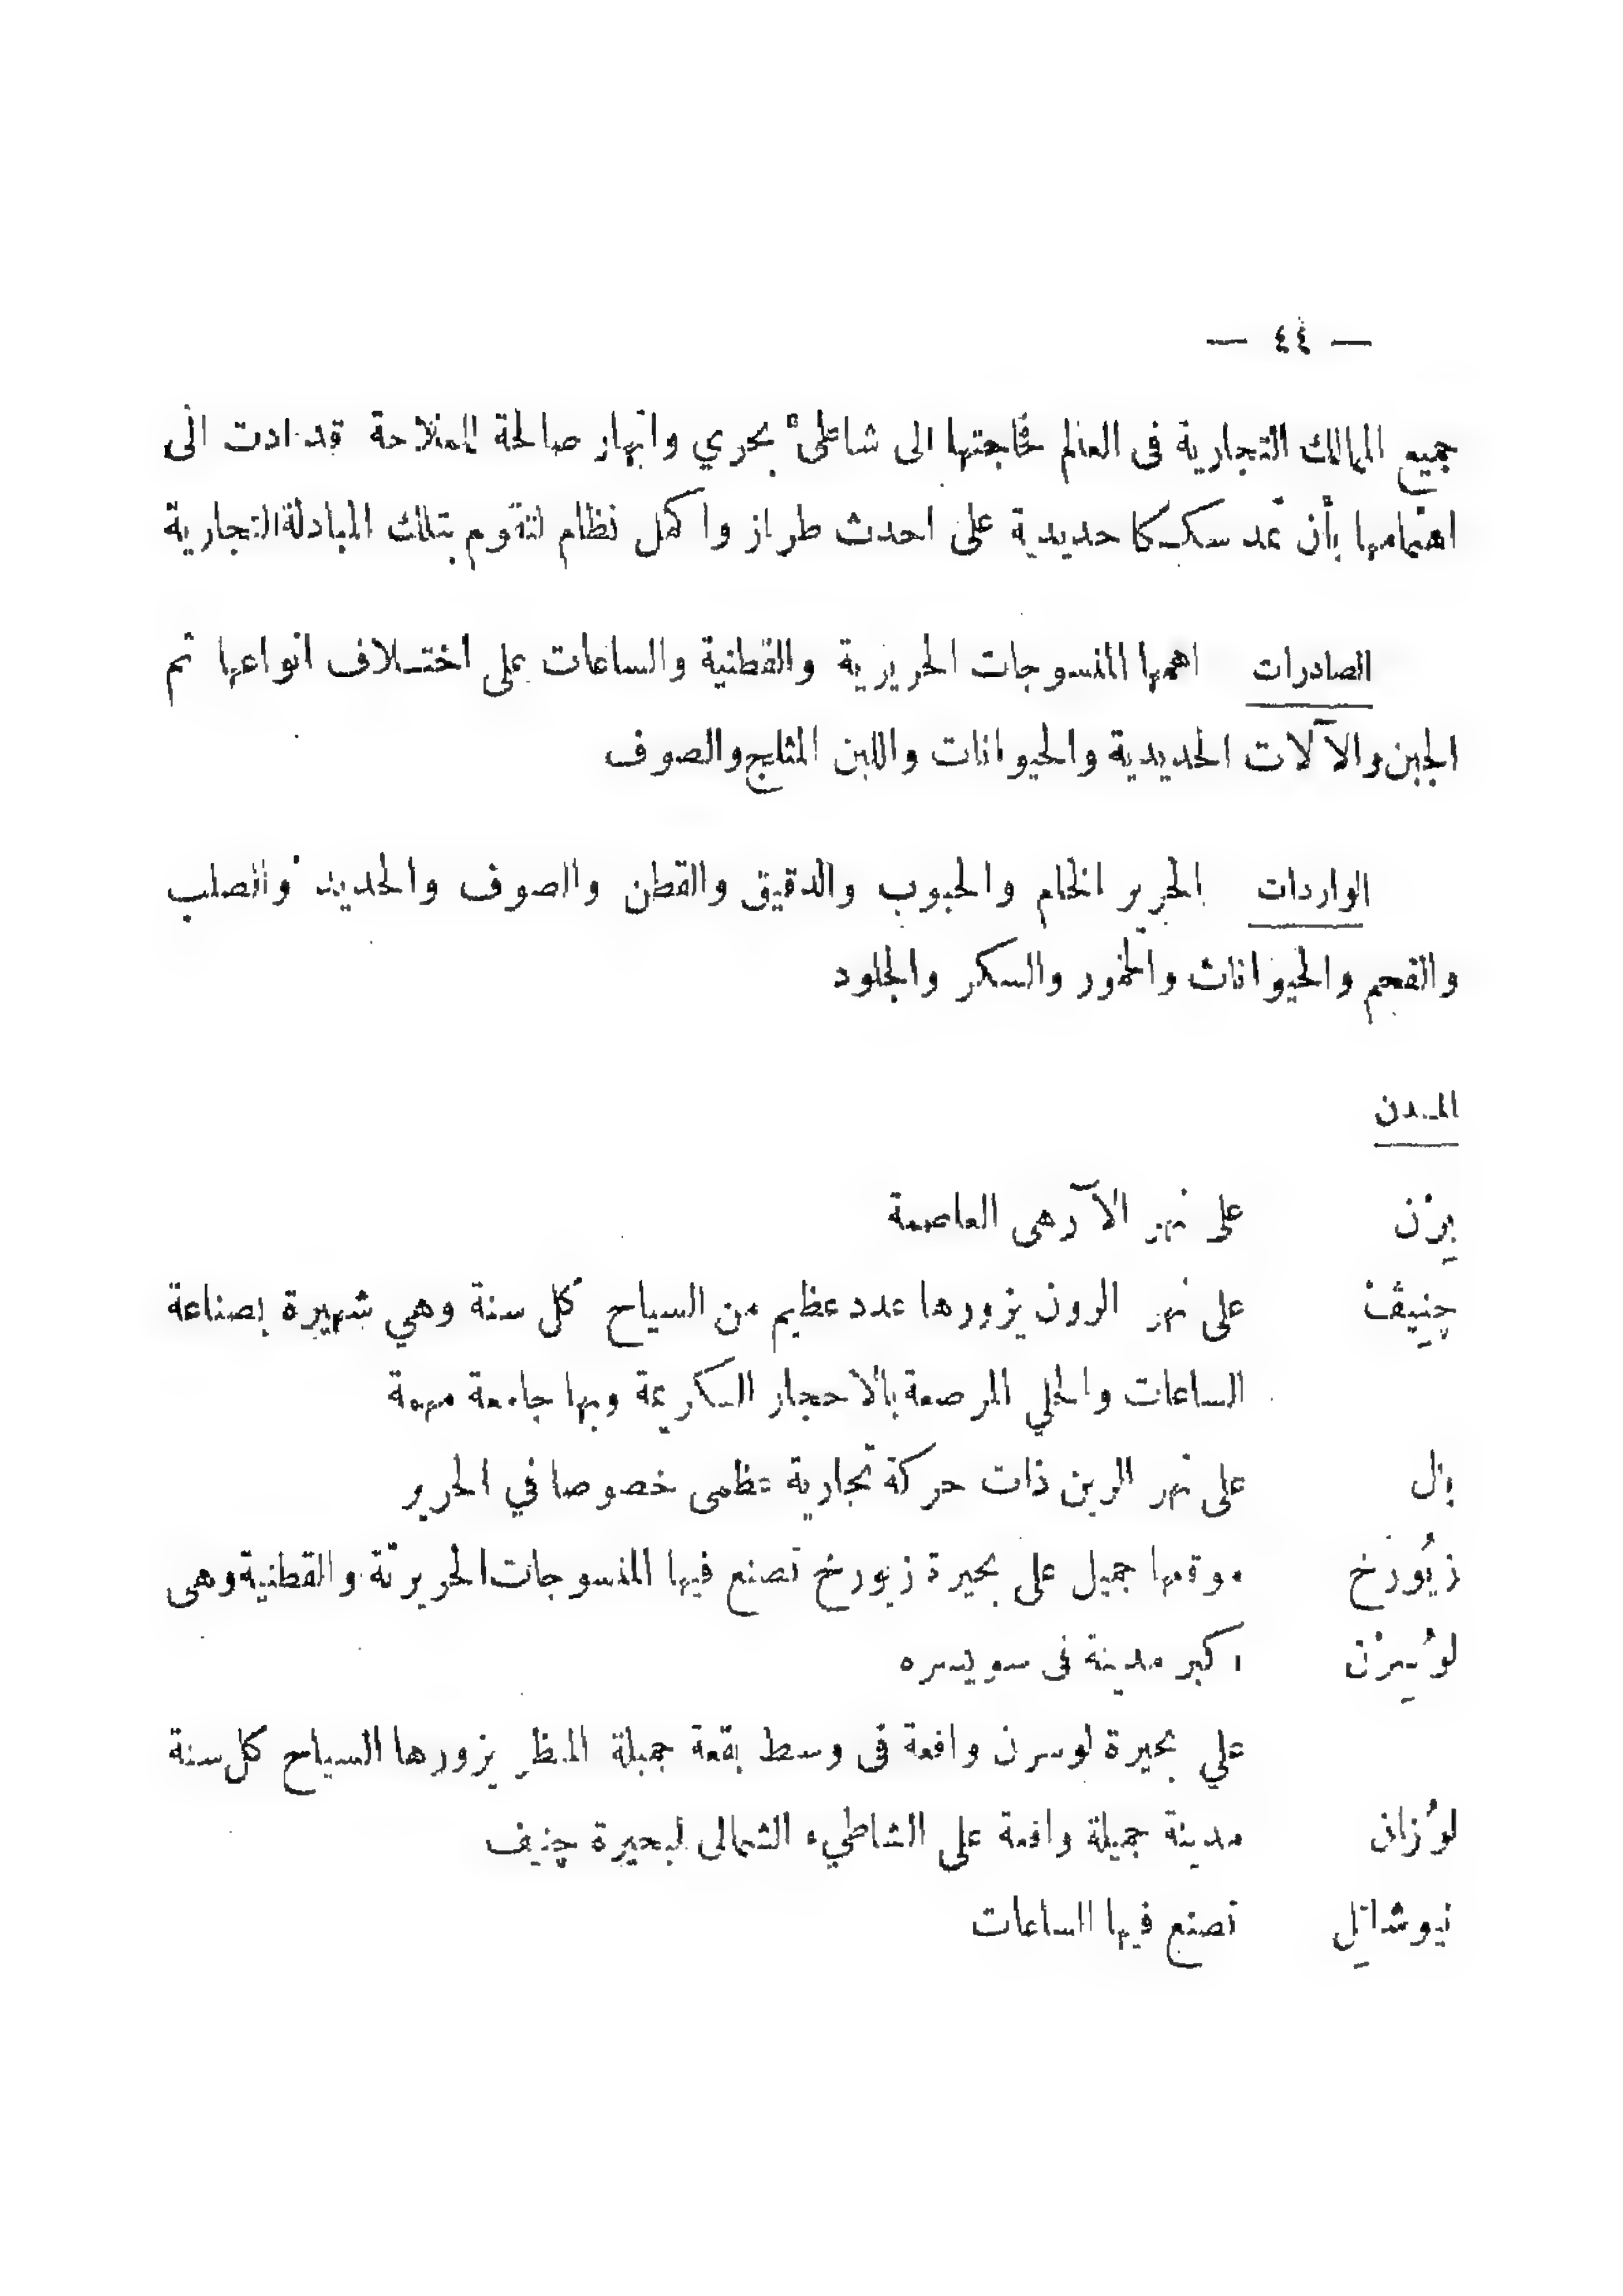 — ٤٤ —
جميع الممالك التجارية فى العالم فحاجتها الى شاطىء بحري وانهار صالحة للملاحة قد ادت الى
اهتمامها بأن تمد سككا حديدية على احدث طراز واكمل نظام لتقوم بتلك المبادلة التجارية
الصادرات اهمها المنسوجات الحريرية والقطنية والساعات على اختلاف انواعها ثم
الجبن والآلات الحديدية والحيوانات واللبن المثلج والصوف
الواردات الحرير الخام والحبوب والدقيق والقطن والصوف والحديد والصلب
والفحم والحيوانات والخمور والسكر والجلود
المدن
بِرْن على نهر الآر هى العاصمة
چنِيڤْ على نهر الرون يزورها عدد عظيم من السياح كل سنة وهي شهيرة بصناعة
الساعات والحلي المرصعة بالاحجار الكريمة وبها جامعة مهمة
بال على نهر الرين ذات حركة تجارية عظمى خصوصا في الحرير
زيُورخ موقعها جميل على بحيرة زيورخ تصنع فيها المنسوجات الحريرية والقطنية وهى
لوُسِرْن اكبر مدينة فى سويسره
علي بحيرة لوسرن واقعة فى وسط بقعة جميلة المنظر يزورها السياح كل سنة
لوُزان مدينة جميلة واقعة على الشاطيء الشمالى لبحيرة چنيف
نيوشاتِل تصنع فيها الساعات